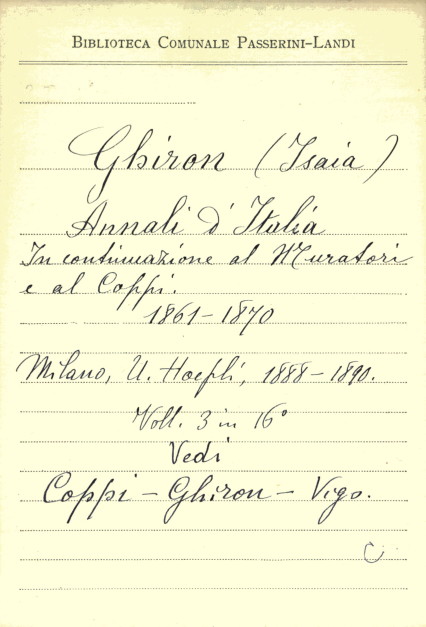 BIBLIOTECA COMUNALE PASSERINI-LANDI
Ghiron (Isaia)
Annali d'Italia
In continuazione al Muratori
e al Coppi.
1861-1870
Milano, U. Hoepli, 1888-1890.
Voll. 3 in 16°
Vedi
Coppi - Ghiron - Vigo.
C